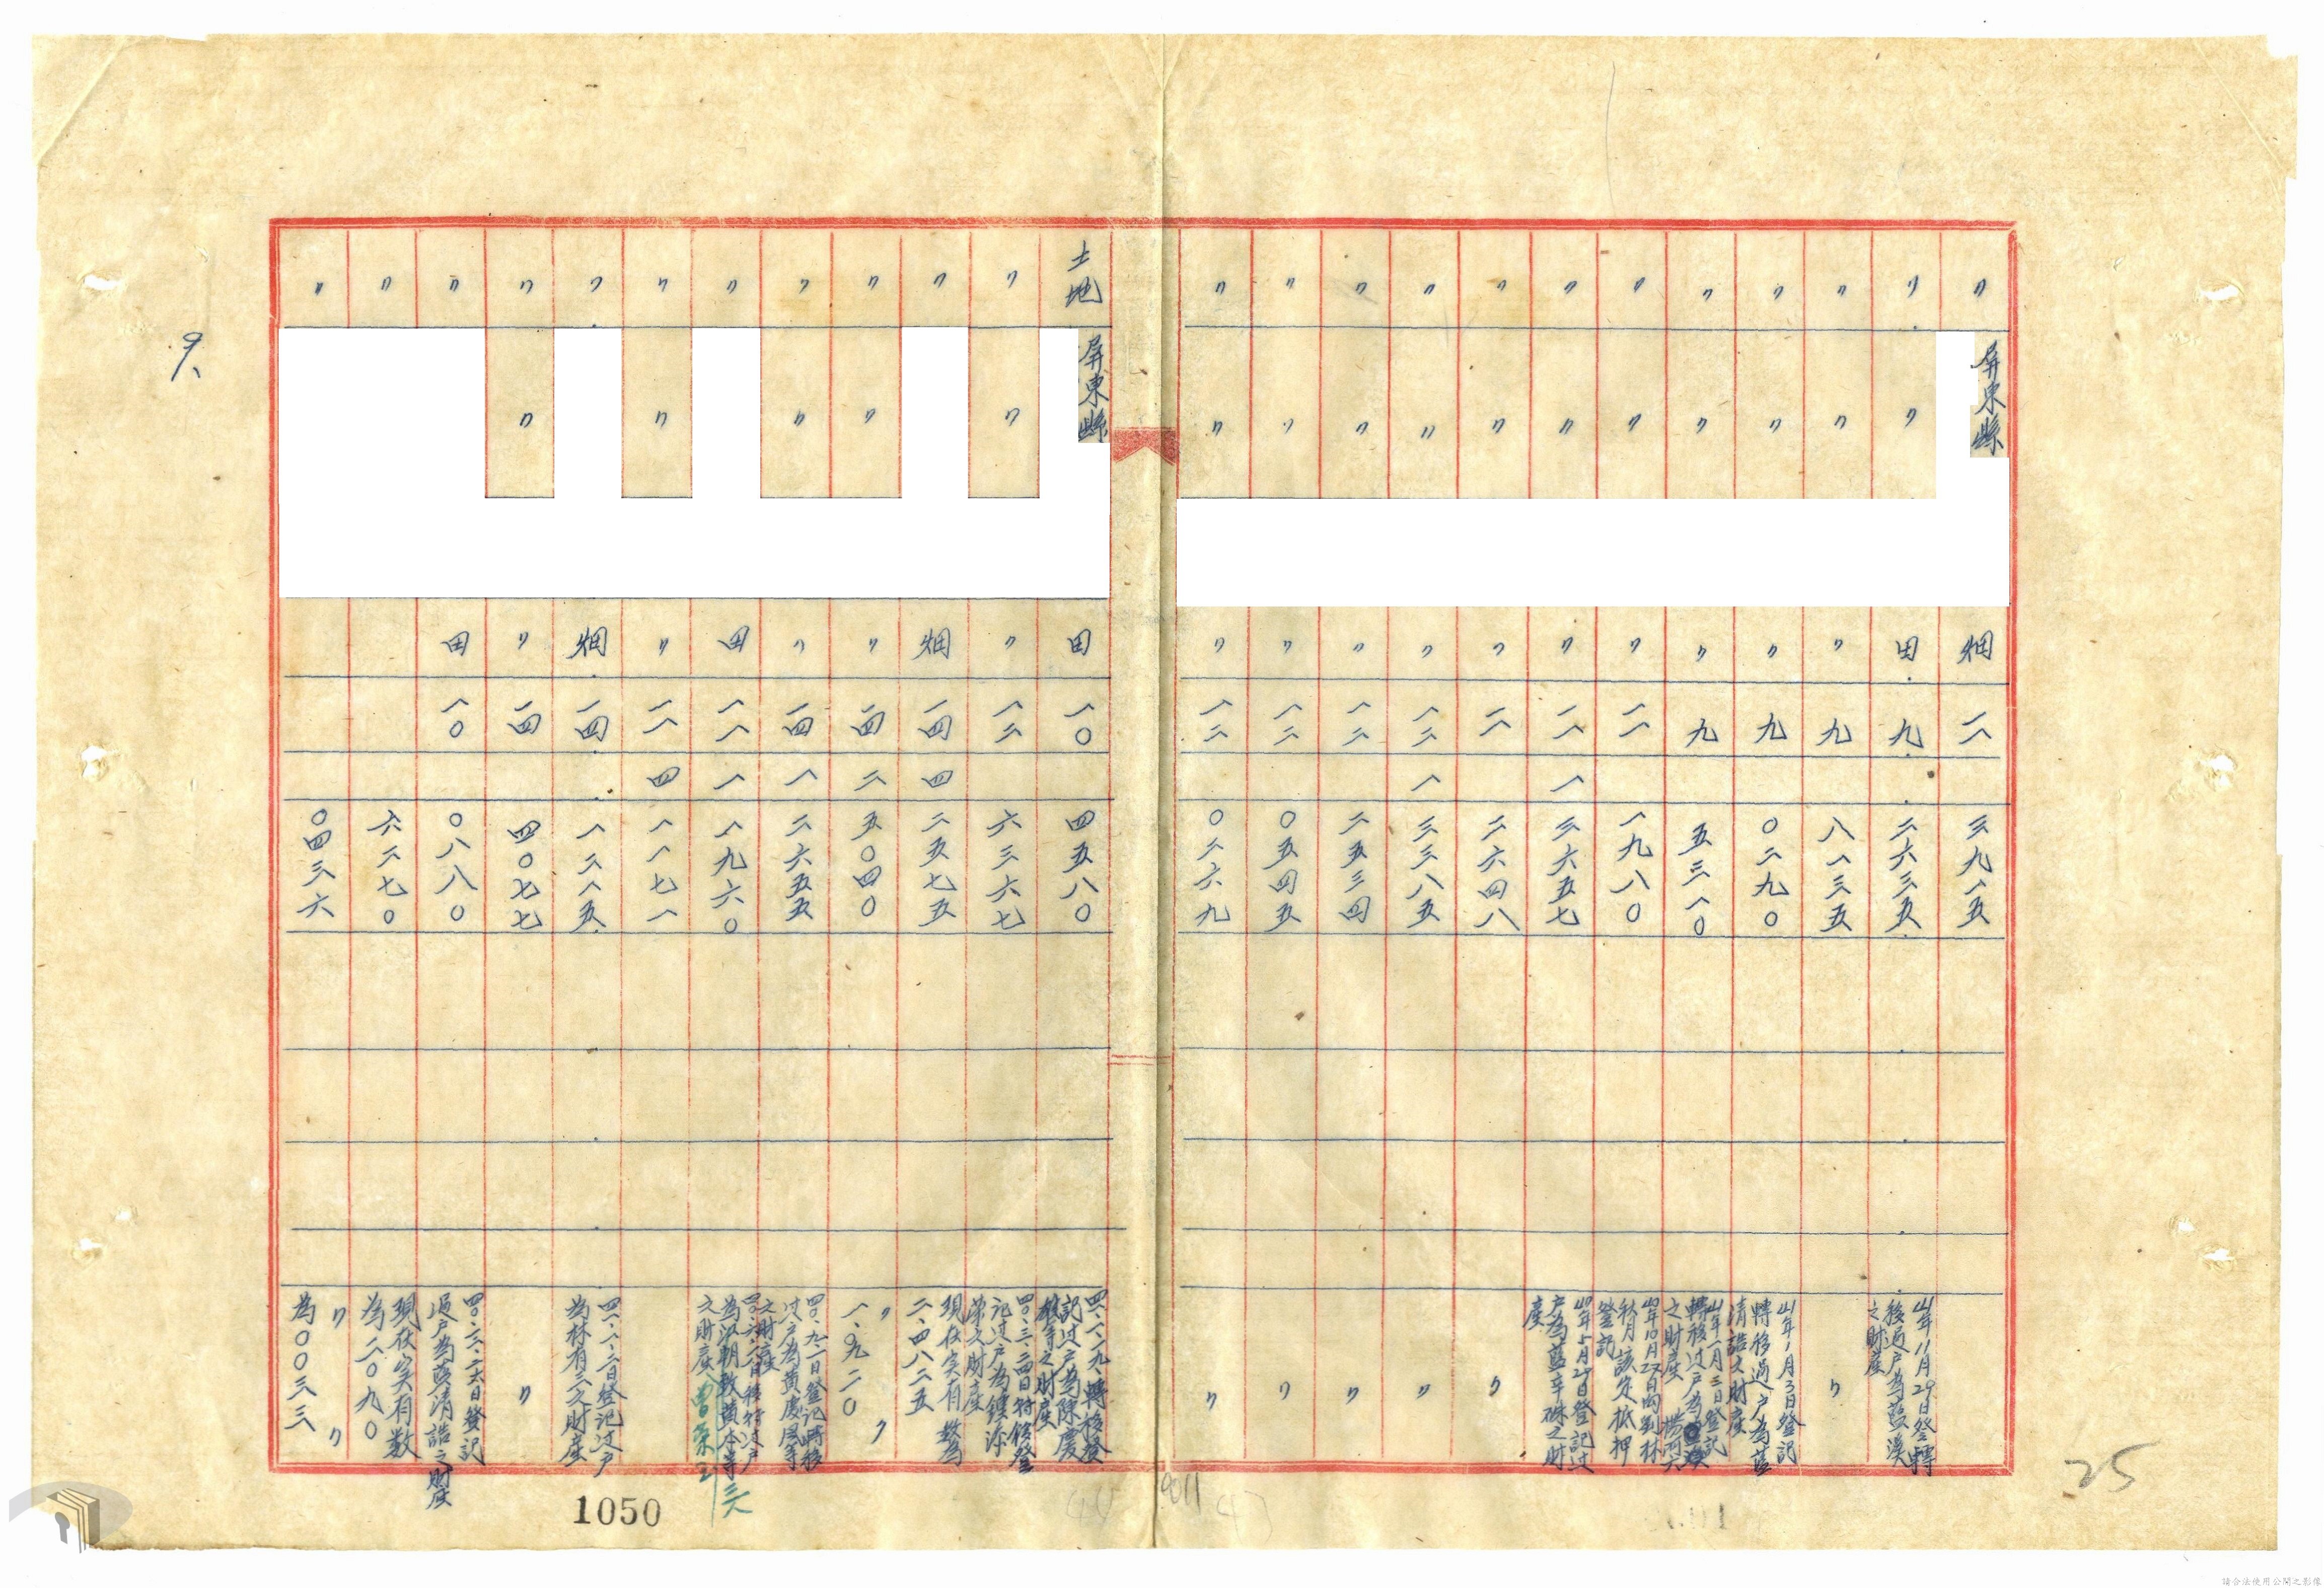 〃 屏東縣 畑 一一 三九一五
〃 〃 田 九 二六三五 41年11月29日登轉移過戶為藍漢之財產
〃 〃 〃 九 八一三五 〃
〃 〃 〃 九 〇二九〇 41年1月3日登記轉移過戶為藍清誥之財產
〃 〃 〃 九 五三一〇 41年一月三日登記轉移过戶為楊阿六之財產
〃 〃 〃 一一 一九八〇 40年10月27日向劉林秋月該定抵押登記
〃 〃 〃 一一 一 三六五七 40年5月29日登記过戶為藍辛硃之財產
〃 〃 〃 一一 二六四八 〃
〃 〃 〃 一二 一 三三八五 〃
〃 〃 〃 一二 二五三四 〃
〃 〃 〃 一二 〇五四五 〃
〃 〃 〃 一二 〇二六九 〃
土地 屏東縣 田 一〇 四五八〇 四一、一、一九、轉移登記过戶為陳慶雄等之財產
〃 〃 〃 一二 六三六七 四〇、三、二四日轉移登記过戶為鍾添榮之財產
〃 畑 一四 四 二五七五 現在实有数為二、四八二五
〃 〃 〃 一四 二 五〇四〇 〃 一、九二〇 〃
〃 〃 〃 一四 一 二六五五 四〇、九、一日登記轉移过戶為黃慶風等之財產
〃 田 一一 一 一九六〇 四〇、六、八日移轉过戶為洪朝敦黃本等三人之財產
〃 〃 〃 一一 四 一一七一
〃 畑 一四 一二一五 四一、八、二日登记过戶為林有三之財產
〃 〃 〃 一四 四〇七七 〃
〃 田 一〇 〇八八〇 四〇、三、二六日登記過戶為黃清誥之財產
〃 六二七〇 現在实有数為二〇九〇
〃 〇四三六 〃 為〇〇三三 〃
九、
1050
25
請合法使用公開之影像